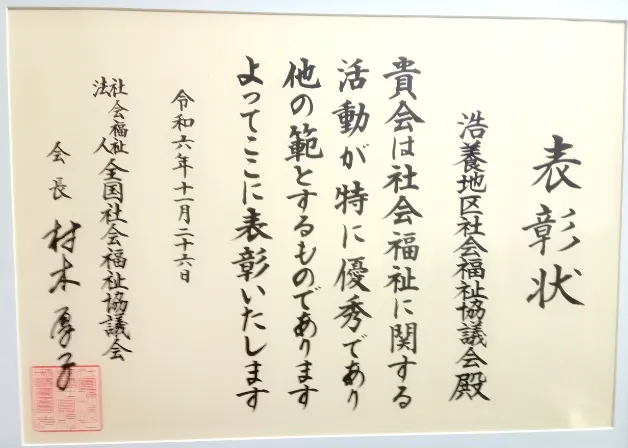 表彰状
浩養地区社会福祉協議会殿
貴会は社会福祉に関する
活動が特に優秀であり
他の範とするものであります
よってここに表彰いたします
令和六年十一月二十六日
社会福祉法人全国社会福祉協議会
会長 村木厚子